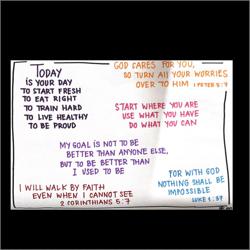 TODAY
IS YOUR DAY
TO START FRESH
TO EAT RIGHT
TO TRAIN HARD
TO LIVE HEALTHY
TO BE PROUD
GOD CARES FOR YOU,
SO TURN All YOUR WORRIES
OVER TO HIM 1 PETER 5:7
START WHERE YOU ARE
USE WHAT YOU HAVE
DO WHAT YOU CAN
MY GOAL IS NOT TO BE
BETTER THAN ANYONE ELSE,
BUT TO BE BETTER THAN
I USED TO BE
I WILL WALK BY FAITH
EVEN WHEN I CANNOT SEE
2 CORINTHIANS 5:7
FOR WITH GOD
NOTHING SHALL BE
IMPOSSIBLE
LUKE 1:37